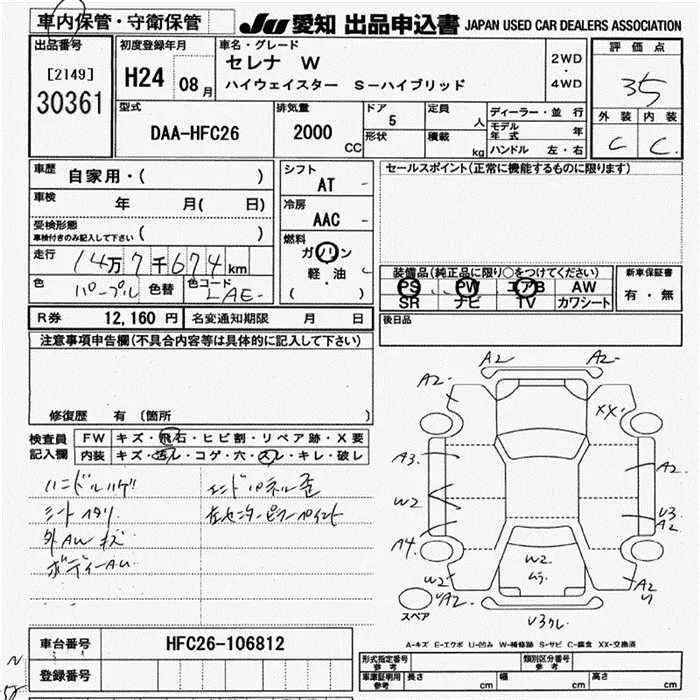 車内保管・守衛保管
JU 愛知 出品申込書 JAPAN USED CAR DEALERS ASSOCIATION
出品番号
[2149]
30361
初度登録年月
H24 08月
車名・グレード
セレナ W
ハイウェイスター S-ハイブリッド
2WD
・
4WD
評価点
35
外装 内装
C C
型式
DAA-HFC26
排気量
2000 CC
ドア
5
形状
定員
人
積載
kg
ディーラー・並行
モデル年式 年
ハンドル 左・右
車歴 自家用・( )
車検 年 月( 日)
受検形態
車検付きのみ記入して下さい ( )
走行 14万7千674km
色 パープル 色替 色コード LAE-
シフト
AT -
冷房
AAC -
燃料
ガソリン
軽油
( )
セールスポイント(正常に機能するものに限ります)
装備品(純正品に限り○をつけてください)
PS PW エアB AW
SR ナビ TV カワシート
新車保証書
有・無
R券 12,160円 名変通知期限 月 日
後日品
注意事項申告欄(不具合内容等は具体的に記入して下さい)
修復歴 有 〔箇所 〕
検査員記入欄
FW キズ・飛石・ヒビ割・リペア跡・X要
内装 キズ・汚レ・コゲ・穴・スレ・キレ・破レ
ハンドルハゲ
シートヘタリ
外AWキズ
ボディーAU
エンドパネル歪
左センターピラーペイント
A2 A2-
A2-
XX-
A3.
A2
W2
U3
A2
A4
W2
ムラ
W2
A2
A2
U3クレ
スペア
A-キズ E-エクボ U-凹み W-補修跡 S-サビ C-腐食 XX-交換済
車台番号 HFC26-106812
登録番号
形式指定番号
参考
類別区分番号
参考
車庫証明用
参考
長さ cm 幅 cm 高さ cm